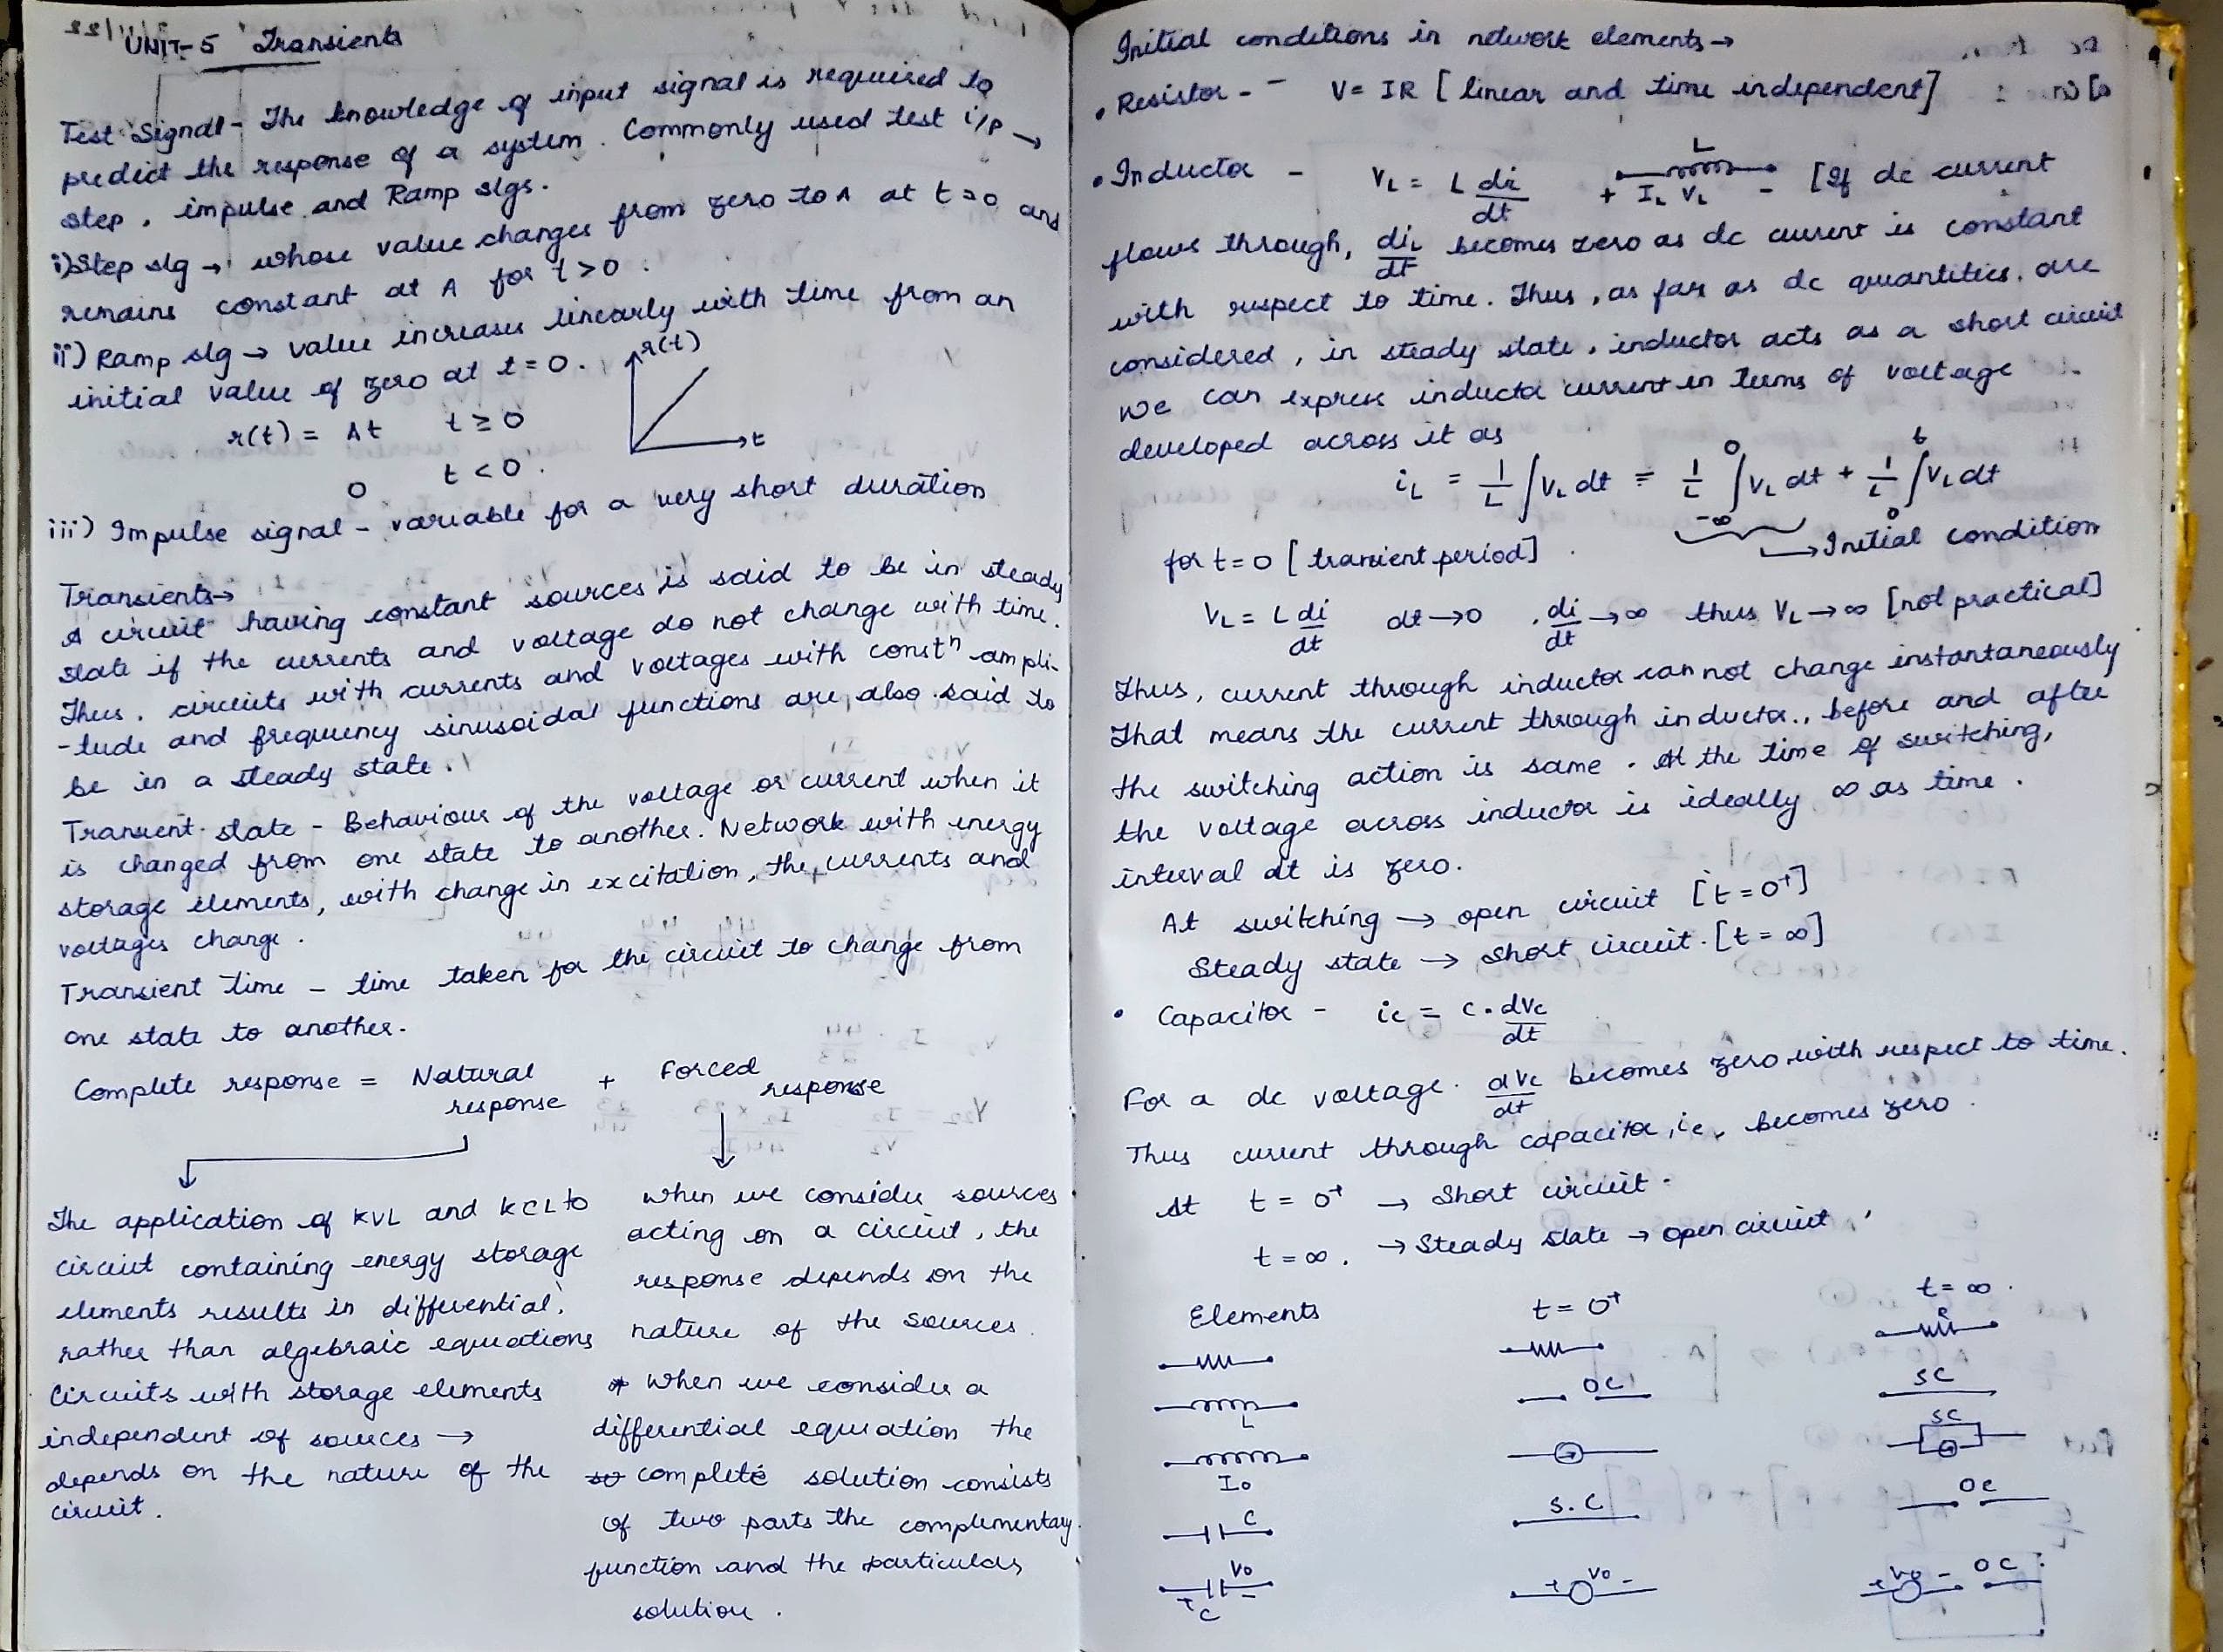 UNIT-5 Transients
Test Signal - The knowledge of input signal is required to
predict the response of a system. Commonly used test i/p →
step, impulse and Ramp slgs.
i) Step slg → whose value changes from zero to A at t=0 and
remains constant at A for t>0.
ii) Ramp slg → value increases linearly with time from an
initial value of zero at t=0.
r(t)
r(t) = At t ≥ 0
t
0 t < 0.
iii) Impulse signal - variable for a very short duration
Transients →
A circuit having constant sources is said to be in steady
state if the currents and voltage do not change with time.
Thus, circuits with currents and voltages with constⁿ ampli-
-tude and frequency sinusoidal functions are also said to
be in a steady state.
Transient state - Behaviour of the voltage or current when it
is changed from one state to another. Network with energy
storage elements, with change in excitation, the currents and
voltages change.
Transient time - time taken for the circuit to change from
one state to another.
Complete response = Natural response + Forced response
The application of KVL and KCL to
circuit containing energy storage
elements results in differential,
rather than algebraic equations
Circuits with storage elements
independent of sources →
depends on the nature of the
circuit.
when we consider sources
acting on a circuit, the
response depends on the
nature of the sources.
* when we consider a
differential equation the
complete solution consists
of two parts the complementary
function and the particular
solution.
Initial conditions in network elements →
• Resistor - - V = IR [linear and time independent]
• Inductor - V_L = L di/dt L + I_L V_L - [If dc current
flows through, di_L/dt becomes zero as dc current is constant
with respect to time. Thus, as far as dc quantities, are
considered, in steady state, inductor acts as a short circuit
We can express inductor current in terms of voltage
developed across it as
i_L = 1/L ∫V_L dt = 1/L ∫_{-∞}^{0} V_L dt + 1/L ∫_{0}^{t} V_L dt
→ Initial condition
for t=0 [transient period].
V_L = L di/dt dt → 0 , di/dt → ∞ thus V_L → ∞ [not practical]
Thus, current through inductor can not change instantaneously
That means the current through inductor, before and after
the switching action is same. At the time of switching,
the voltage across inductor is ideally ∞ as time
interval dt is zero.
At switching → open circuit [t = 0⁺]
Steady state → short circuit. [t = ∞]
• Capacitor - i_c = C. dV_c/dt
For a dc voltage. dV_c/dt becomes zero with respect to time.
Thus current through capacitor, i_c, becomes zero.
At t = 0⁺ → Short circuit.
t = ∞. → Steady state → open circuit,
Elements t = 0⁺ t = ∞.
R
L OC SC
I₀ SC
C S.C. OC
+ V₀ - C + V₀ - + V₀ - OC